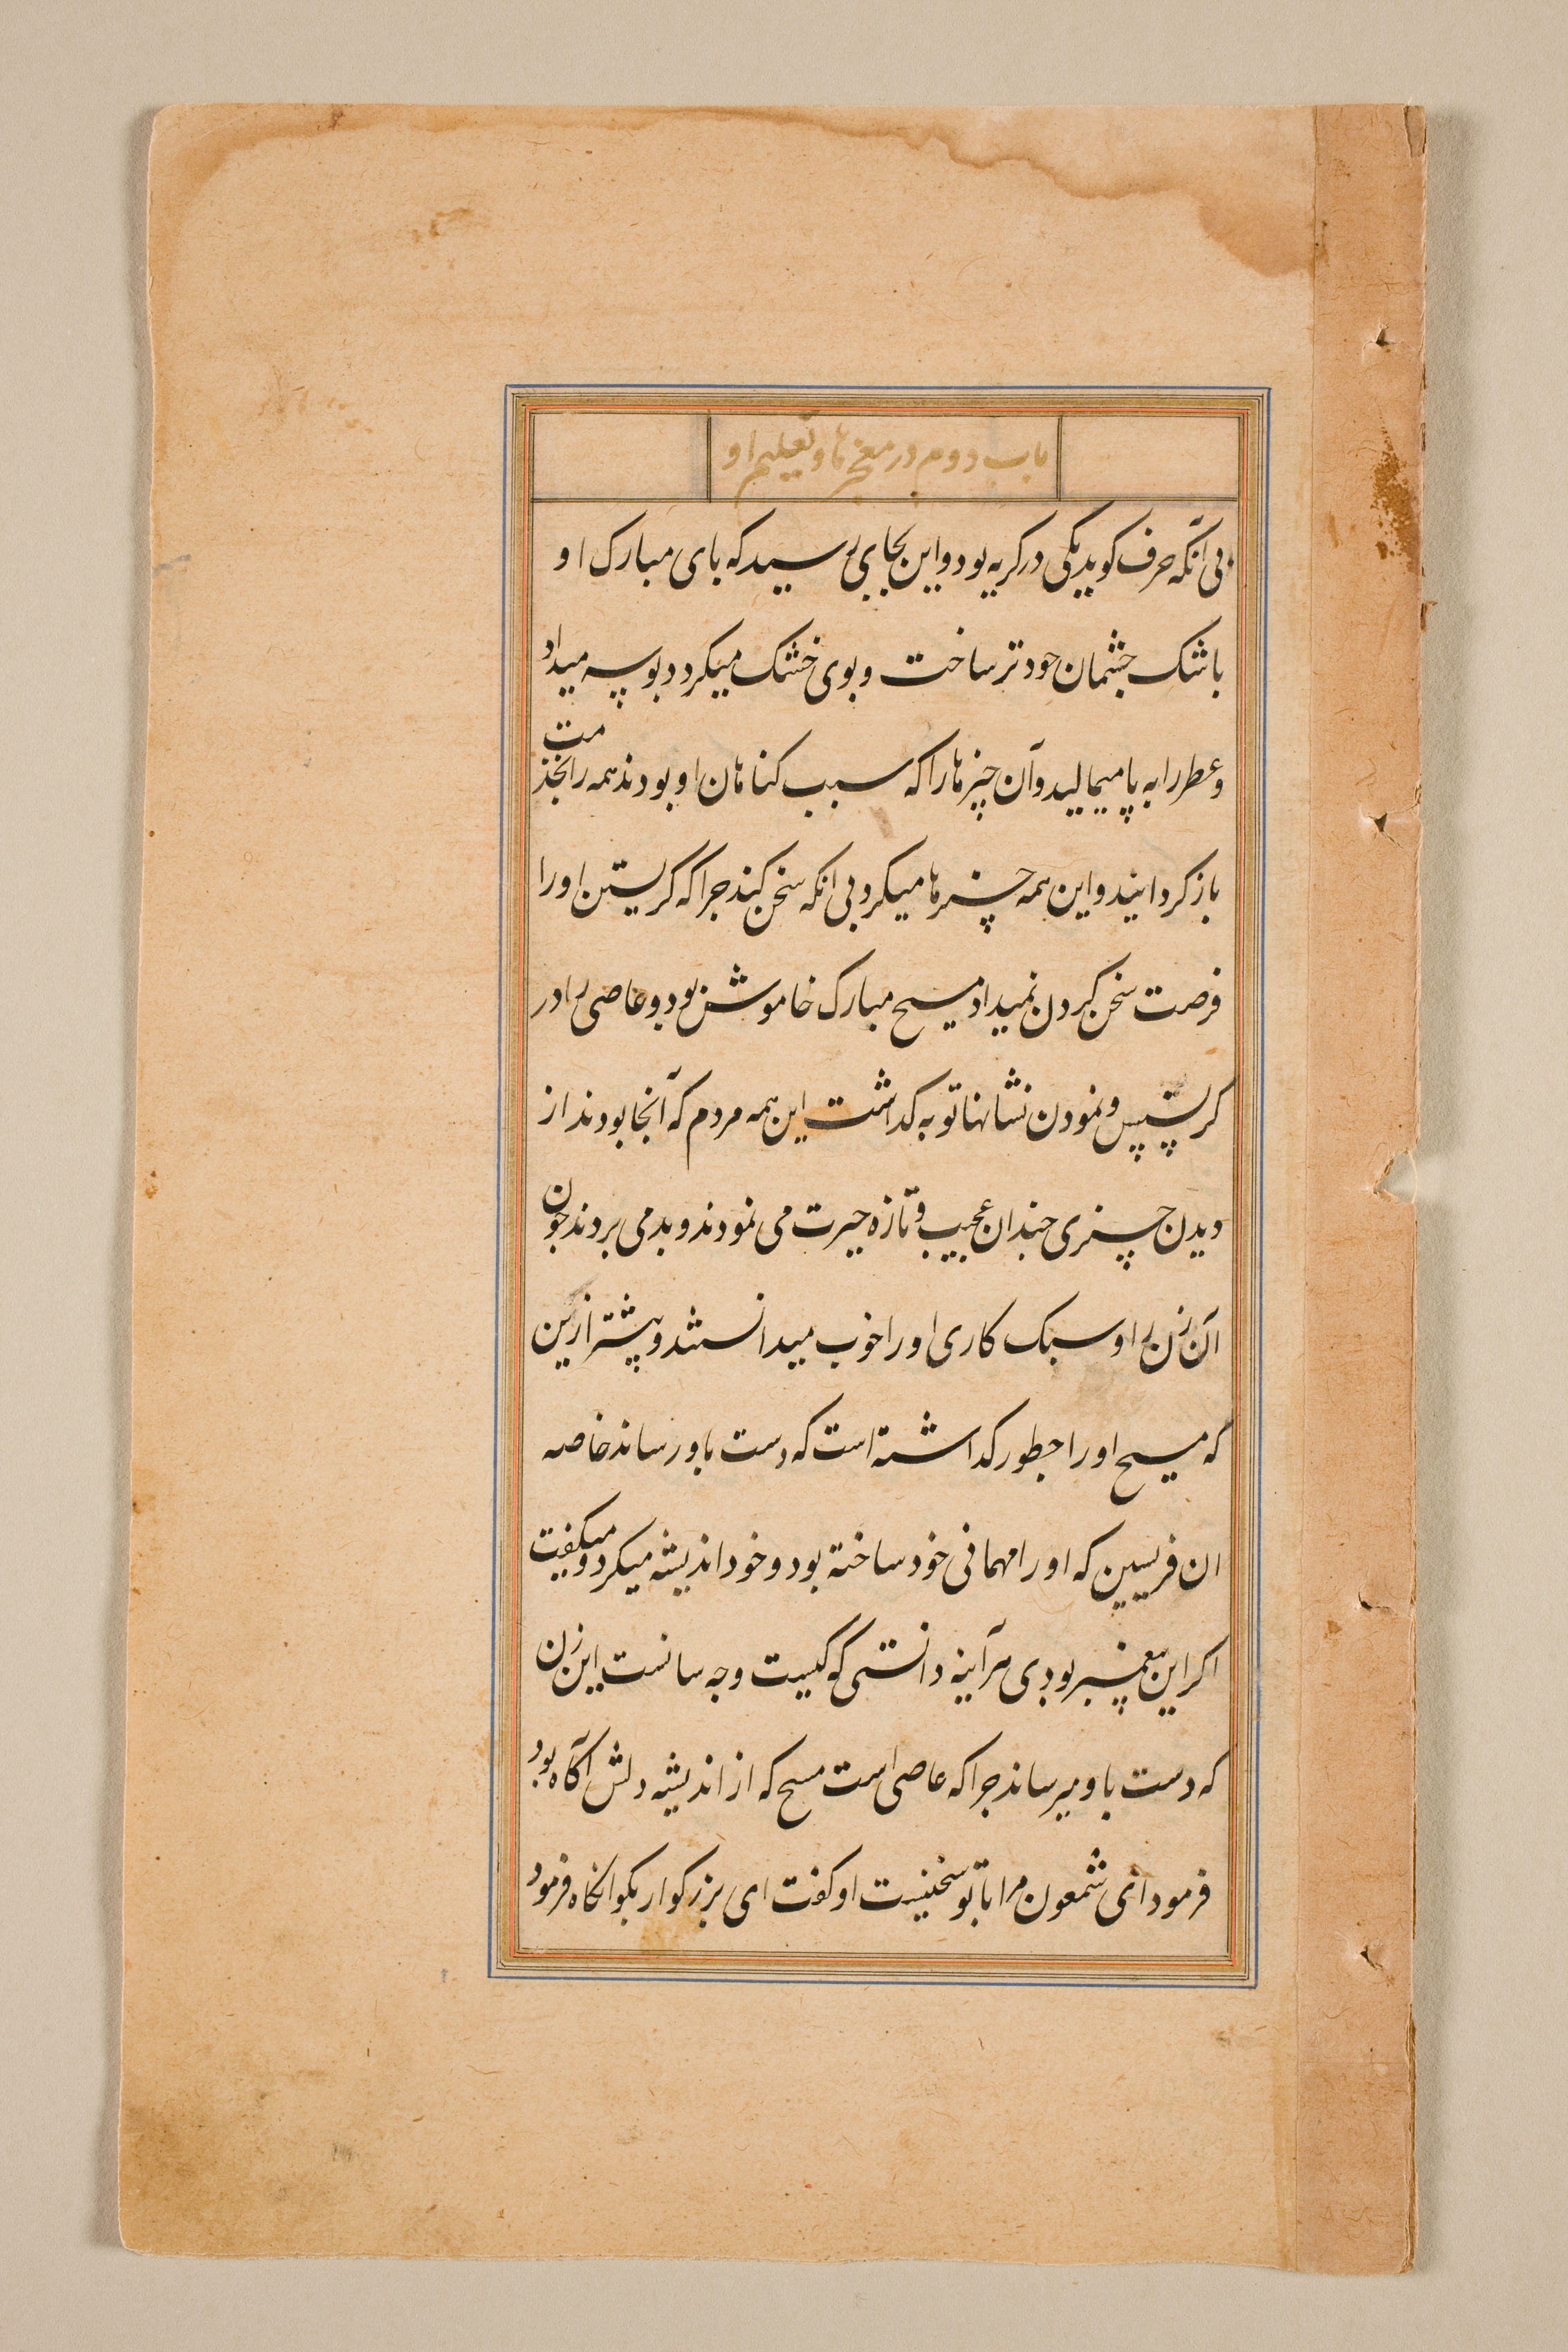 باب دوم در معجزها و تعلیم او
بی آنکه حرف کوید یکی در کریه بود و این بجای رسید که بای مبارک او
باشک جشمان خود تر ساخت و بموی خشک میکرد و بوسه میداد
و عطر را به پا میمالید و آن چیزها را که سبب کناهان او بودند همه را بخدمت
باز کردانید و این همه چیزها میکرد بی انکه سخن کند جرا که کریستن او را
فرصت سخن کردن نمیداد مسیح مبارک خاموش بود و عاصی را در
کریستن و نمودن نشانهاء توبه کداشت این همه مردم که آنجا بودند از
دیدن چیزی جندان عجیب و تازه حیرت می نمودند و بد می بردند جون
آن زن را و سبک کاری او را خوب میدانستند و پیشتر ازین
که مسیح او را جطور کداشته است که دست باو رساند خاصه
ان فریسین که او را مهمانی خود ساخته بود و خود اندیشه میکرد و میکفت
اکر این پیغمبر بودی هرآینه دانستی که کیست و جه سانست این زن
که دست باو میرساند جرا که عاصی است مسیح که از اندیشه دلش آکاه بود
فرمود ای شمعون مرا با تو سخنیست او کفت ای بزرکوار بکو انکاه فرمود